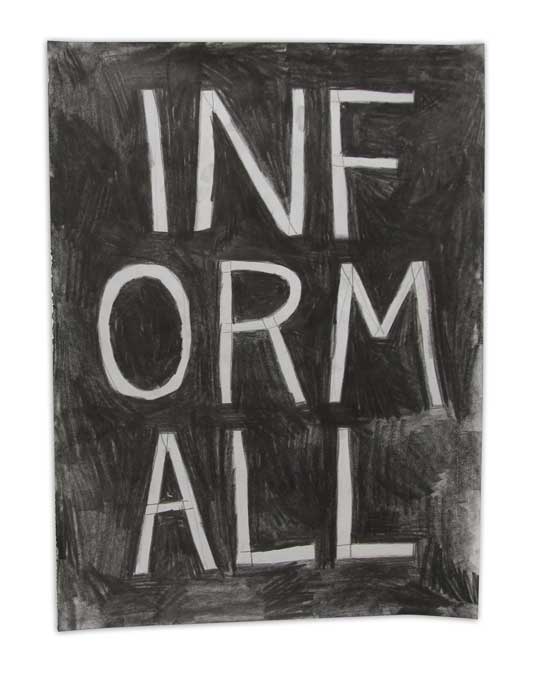 INF
ORM
ALL